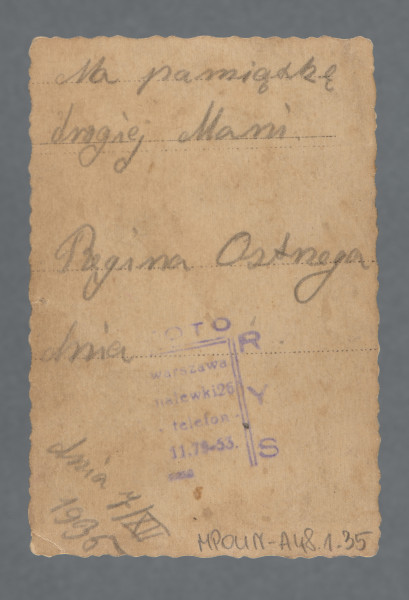 Na pamiątkę
drogiej Mani.
Regina Ostrzega
dnia
FOTO
RYS
warszawa
nalewki26
telefon
11.79-53.
dnia 7/XI
1936
MPOLIN-A48.1.35